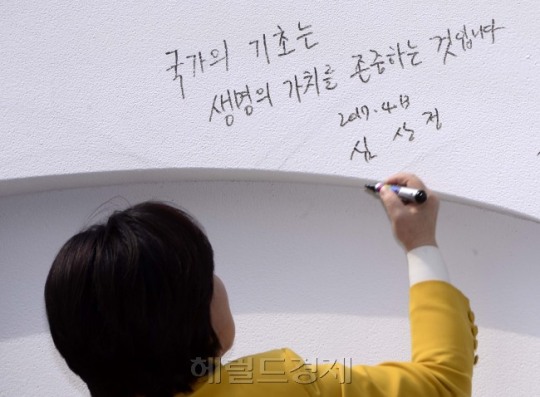 국가의 기초는
생명의 가치를 존중하는 것입니다
2017. 4. 13
심 상 정
헤럴드경제